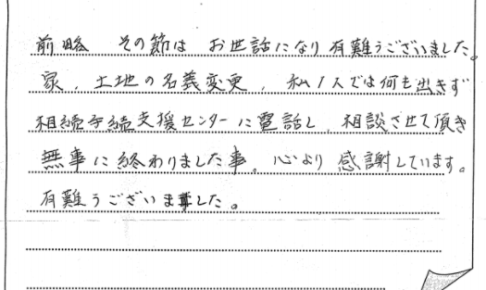 前略 その節は お世話になり 有難うございました。
家、土地の名義変更、私1人では何も出きず
相続手続支援センターに電話し、相談させて頂き
無事に終わりました事、心より感謝しています。
有難うございました。